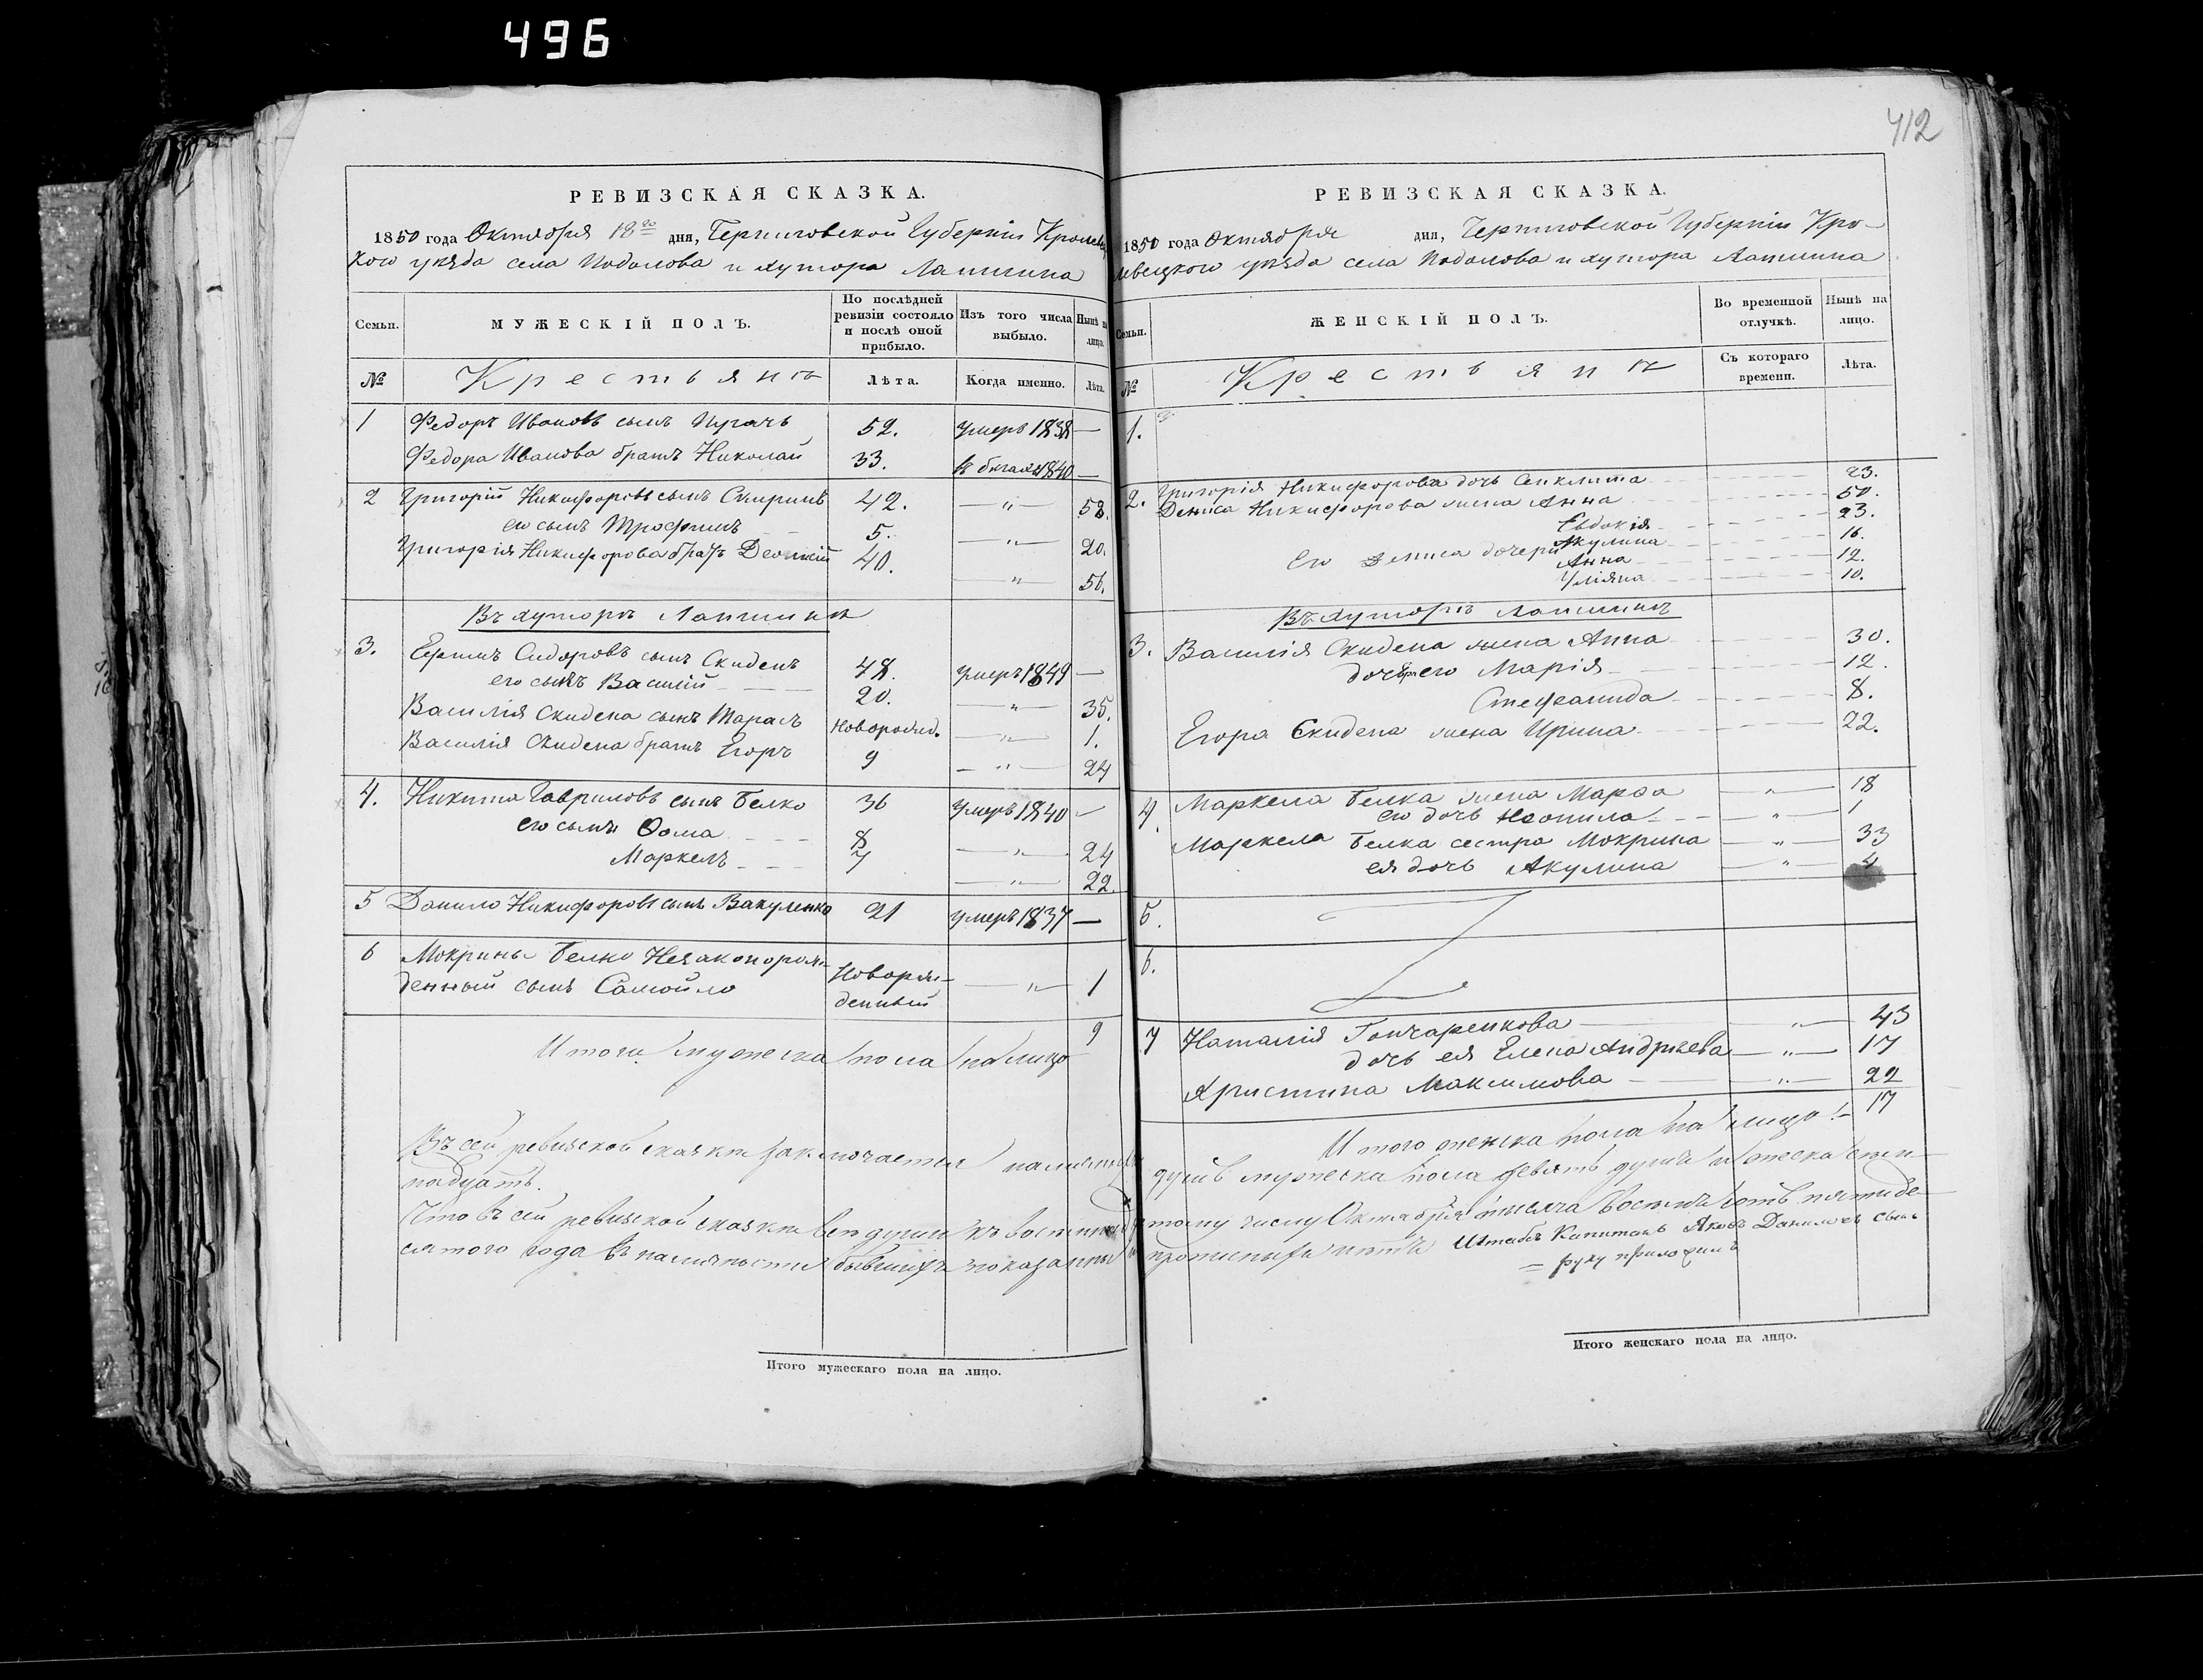 496
412
РЕВИЗСКАЯ СКАЗКА.
1850 года Октября 18го дня, Черниговской Губернии Кролевец
кого уѣзда села Подолова и хутора Лапшина
Семьи. МУЖЕСКІЙ ПОЛЪ. По послѣдней ревизіи состояло и послѣ оной прибыло. Изъ того числа выбыло. Нынѣ на лицо.
№ Крестьянъ Лѣта. Когда именно. Лѣта.
1 Федоръ Ивановъ сынъ Пугачъ 52. умеръ 1838 —
Федора Иванова братъ Николай 33. въ бѣгахъ 1840 —
2 Григорій Никифоровъ сынъ 42. — " — 58.
его сынъ Трофимъ 5. — " — 20.
Григорія Никифорова братъ 40. — " — 56.
Въ хуторѣ Лапшинѣ
3. Ефимъ Сидоровъ сынъ Скиденъ 48. умеръ 1849 —
его сынъ Василій 20. — " — 35.
Василія Скидена сынъ Тарасъ Новорожд. — " — 1.
Василія Скидена братъ Егоръ 9 — " — 24
4. Никита Гавриловъ сынъ Белко 36 умеръ 1840 —
его сынъ Ѳома 8 — " — 24
Маркелъ 7 — " — 22.
5 Данило Никифоровъ сынъ Вакуленко 21 умеръ 1837 —
6 Мокрины Белко Незаконорож-
денный сынъ Самойло Новорож-
денный — " — 1
Итого мужеска пола налицо 9
Въ сей ревизской сказкѣ заключается наличныхъ
надцать.
Что въ сей ревизской сказкѣ всѣ души къ
сятого года въ наличности бывшихъ показанны
Итого мужескаго пола на лицо.
РЕВИЗСКАЯ СКАЗКА.
1850 года Октября дня, Черниговской Губерніи Кро-
левецкого уѣзда села Подолова и хутора Лапшина
Семьи. ЖЕНСКІЙ ПОЛЪ. Во временной отлучкѣ. Нынѣ на лицо.
№ Крестьянъ Съ котораго времени. Лѣта.
1.
2. Григорія Никифорова дочь 23.
Дениса Никифорова жена Анна 50.
Евдокія 23.
Его Дениса дочери Акулина 16.
Анна 12.
Уліяна 10.
Въ хуторѣ Лапшинѣ
3. Василія Скидена жена Анна 30.
дочери его Марія 12.
Стефанида 8.
Егора Скидена жена Ирина 22.
4. Маркела Белка жена Марѳа — " — 18
его дочь Неонила — " — 1
Маркела Белка сестра Мокрина — " — 33
ея дочь Акулина — " — 4
5.
6.
7 Наталія Гончаренкова — " — 43
дочь ея Елена Андрѣева — " — 17
Христина Максимова — " — 22
Итого женска пола на лицо 17
душъ мужеска пола девять душъ и женска семь-
тому числу Октября тысяча восемь сотъ пятиде-
прописныхъ нѣтъ Штабсъ Капитанъ Яковъ Даниловъ сынъ
— руку приложилъ
Итого женскаго пола на лицо.